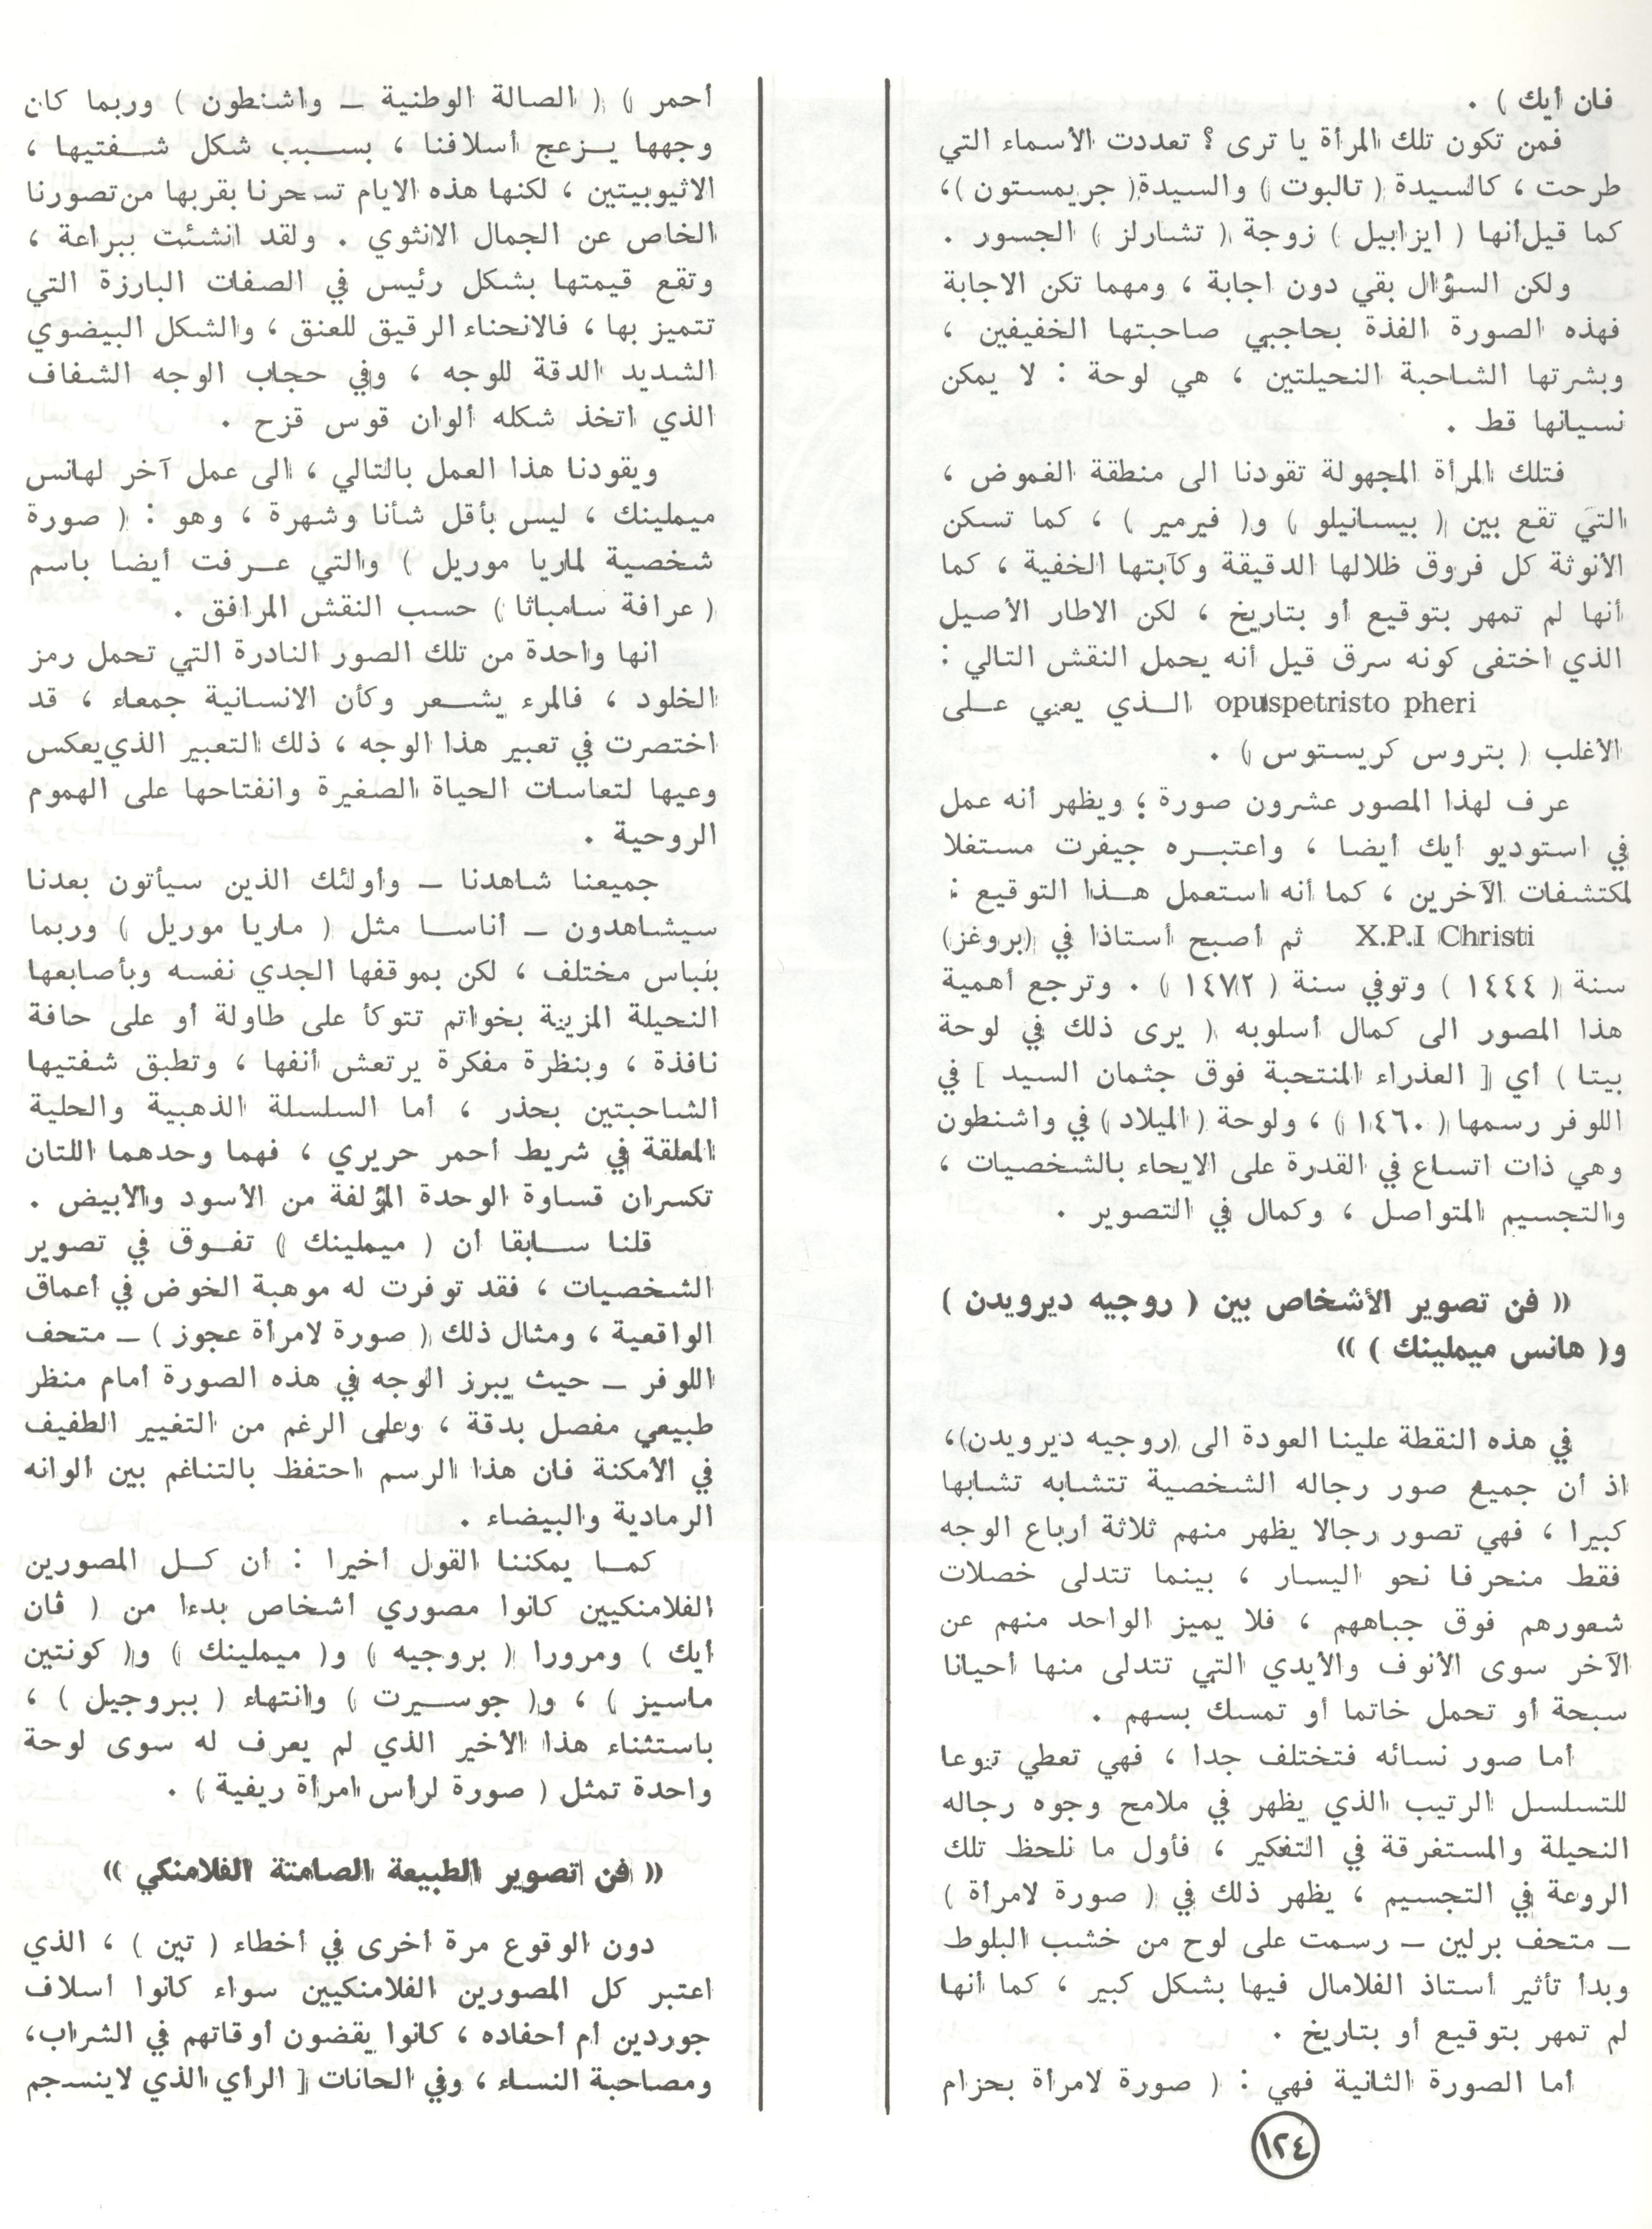 فان أيك ) .
فمن تكون تلك المرأة يا ترى ؟ تعددت الأسماء التي
طرحت ، كالسيدة ( تالبوت ) والسيدة ( جريمستون )،
كما قيل أنها ( ايزابيل ) زوجة ( تشارلز ) الجسور .
ولكن السؤال بقي دون اجابة ، ومهما تكن الاجابة
فهذه الصورة الفذة بحاجبي صاحبتها الخفيفين ،
وبشرتها الشاحبة النحيلتين ، هي لوحة : لا يمكن
نسيانها قط .
فتلك المرأة المجهولة تقودنا الى منطقة الغموض ،
التي تقع بين ( بيسانيلو ) و( فيرمير ) ، كما تسكن
الأنوثة كل فروق ظلالها الدقيقة وكآبتها الخفية ، كما
أنها لم تمهر بتوقيع أو بتاريخ ، لكن الاطار الأصيل
الذي اختفى كونه سرق قيل أنه يحمل النقش التالي :
opuspetristo pheri الـذي يعني عـلى
الأغلب ( بتروس كريستوس ) .
عرف لهذا المصور عشرون صورة ؛ ويظهر أنه عمل
في استوديو أيك أيضا ، واعتبـره جيفرت مستغلا
لمكتشفات الآخرين ، كما أنه استعمل هـذا التوقيع :
X.P.I Christi ثم أصبح أستاذا في (بروغز)
سنة ( ١٤٤٤ ) وتوفي سنة ( ١٤٧٢ ) . وترجع أهمية
هذا المصور الى كمال أسلوبه ( يرى ذلك في لوحة
بيتا ) أي [ العذراء المنتحبة فوق جثمان السيد ] في
اللوفر رسمها ( ١٤٦٠ ) ، ولوحة ( الميلاد ) في واشنطون
وهي ذات اتساع في القدرة على الايحاء بالشخصيات ،
والتجسيم المتواصل ، وكمال في التصوير .
« فن تصوير الأشخاص بين ( روجيه ديرويدن )
و( هانس ميملينك ) »
في هذه النقطة علينا العودة الى (روجيه ديرويدن)،
اذ أن جميع صور رجاله الشخصية تتشابه تشابها
كبيرا ، فهي تصور رجالا يظهر منهم ثلاثة أرباع الوجه
فقط منحرفا نحو اليسار ، بينما تتدلى خصلات
شعورهم فوق جباههم ، فلا يميز الواحد منهم عن
الآخر سوى الأنوف والأيدي التي تتدلى منها أحيانا
سبحة أو تحمل خاتما أو تمسك بسهم .
أما صور نسائه فتختلف جدا ، فهي تعطي تنوعا
للتسلسل الرتيب الذي يظهر في ملامح وجوه رجاله
النحيلة والمستغرقة في التفكير ، فأول ما نلحظ تلك
الروعة في التجسيم ، يظهر ذلك في ( صورة لامرأة )
ـ متحف برلين ـ رسمت على لوح من خشب البلوط
وبدأ تأثير أستاذ الفلامال فيها بشكل كبير ، كما أنها
لم تمهر بتوقيع أو بتاريخ .
أما الصورة الثانية فهي : ( صورة لامرأة بحزام
أحمر ) ( الصالة الوطنية ـ واشنطون ) وربما كان
وجهها يـزعج أسلافنا ، بسـبب شكل شـفتيها ،
الاثيوبيتين ، لكنها هذه الايام تسحرنا بقربها من تصورنا
الخاص عن الجمال الانثوي . ولقد أنشئت ببراعة ،
وتقع قيمتها بشكل رئيس في الصفات البارزة التي
تتميز بها ، فالانحناء الرقيق للعنق ، والشكل البيضوي
الشديد الدقة للوجه ، وفي حجاب الوجه الشفاف
الذي اتخذ شكله ألوان قوس قزح .
ويقودنا هذا العمل بالتالي ، الى عمل آخر لهانس
ميملينك ، ليس بأقل شأنا وشهرة ، وهو : ( صورة
شخصية لماريا موريل ) والتي عـرفت أيضا باسم
( عرافة سامباثا ) حسب النقش المرافق .
انها واحدة من تلك الصور النادرة التي تحمل رمز
الخلود ، فالمرء يشـعر وكأن الانسانية جمعاء ، قد
اختصرت في تعبير هذا الوجه ، ذلك التعبير الذي يعكس
وعيها لتعاسات الحياة الصغيرة وانفتاحها على الهموم
الروحية .
جميعنا شاهدنا ـ وأولئك الذين سيأتون بعدنا
سيشاهدون ـ أناسـا مثل ( ماريا موريل ) وربما
بلباس مختلف ، لكن بموقفها الجدي نفسه وبأصابعها
النحيلة المزينة بخواتم تتوكأ على طاولة أو على حافة
نافذة ، وبنظرة مفكرة يرتعش أنفها ، وتطبق شفتيها
الشاحبتين بحذر ، أما السلسلة الذهبية والحلية
المعلقة في شريط أحمر حريري ، فهما وحدهما اللتان
تكسران قساوة الوحدة المؤلفة من الأسود والأبيض .
قلنا سـابقا أن ( ميملينك ) تفـوق في تصوير
الشخصيات ، فقد توفرت له موهبة الخوض في أعماق
الواقعية ، ومثال ذلك ( صورة لامرأة عجوز ) ـ متحف
اللوفر ـ حيث يبرز الوجه في هذه الصورة أمام منظر
طبيعي مفصل بدقة ، وعلى الرغم من التغيير الطفيف
في الأمكنة فان هذا الرسم احتفظ بالتناغم بين ألوانه
الرمادية والبيضاء .
كمـا يمكننا القول أخيرا : أن كـل المصورين
الفلامنكيين كانوا مصوري أشخاص بدءا من ( ڤان
أيك ) ومرورا ( بروجيه ) و( ميملينك ) و( كونتين
ماسيز ) ، و( جوسـيرت ) وانتهاء ( ببروجيل ) ،
باستثناء هذا الأخير الذي لم يعرف له سوى لوحة
واحدة تمثل ( صورة لرأس امرأة ريفية ) .
« فن تصوير الطبيعة الصامتة الفلامنكي »
دون الوقوع مرة أخرى في أخطاء ( تين ) ، الذي
اعتبر كل المصورين الفلامنكيين سواء كانوا أسلاف
جوردين أم أحفاده ، كانوا يقضون أوقاتهم في الشراب،
ومصاحبة النساء ، وفي الحانات [ الرأي الذي لاينسجم
١٢٤